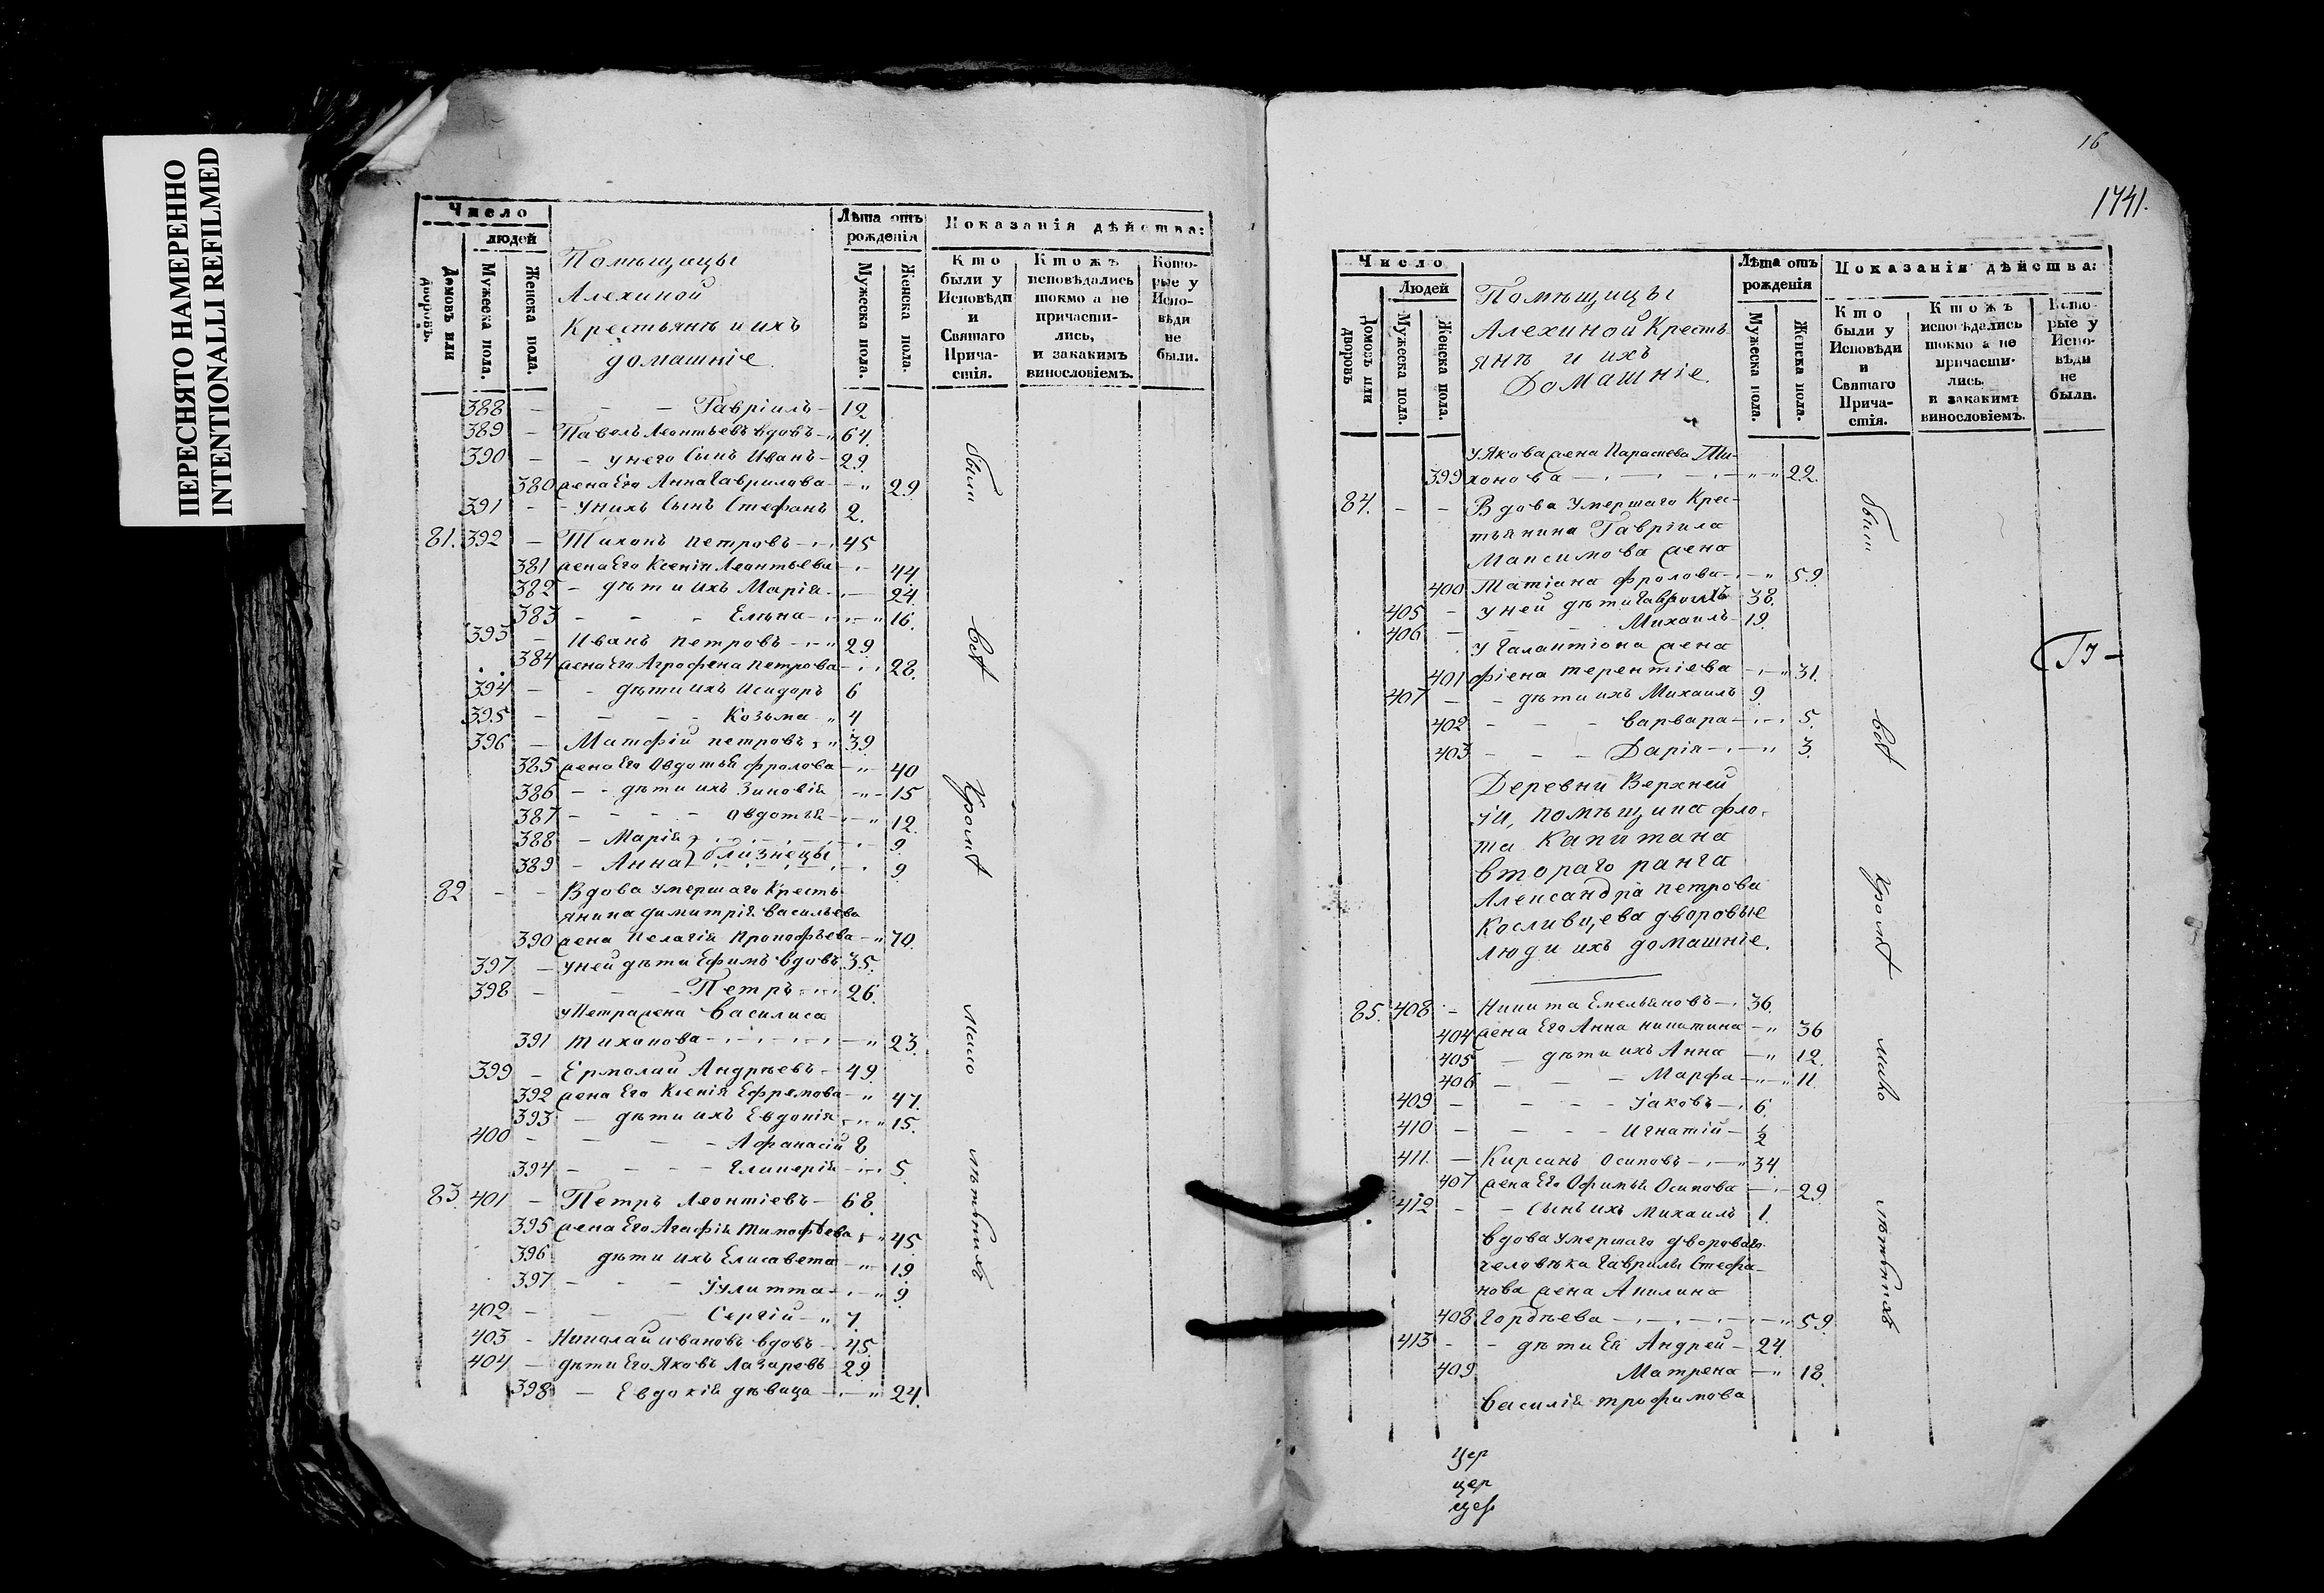 ПЕРЕСНЯТО НАМЕРЕННО
INTENTIONALLI REFILMED
Число
людей
Домовъ или дворовъ.
Мужеска пола.
Женска пола.
Помѣщицы
Алехиной
Крестьянѣ и ихъ
домашніе.
Лѣта отъ рожденія
Мужеска пола.
Женска пола.
Показанія дѣйства:
Кто были у Исповѣди и Святаго Прича- стія.
Ктожъ исповѣдались токмо а не причасти- лись, и закакимъ винословіемъ.
Кото- рые у Испо- вѣди не были.
388 - - - Гавріилъ - 12
389 - Павелъ Леонтьевъ вдовъ - 64.
390 - - у него Сынъ Иванъ - 29.
380 жена Его Анна Гаврилова - 29
391 - - у нихъ Сынъ Стефанъ 2.
81. 392 - Тихонъ петровъ - 45
381 жена Его Ксенія Леонтьева - 44.
382 - дѣти ихъ Марія - 24.
383 - - - Елѣна - 16.
393 - Иванъ петровъ - 29
384 жена Его Агрофена петрова - 28.
394 - - дѣти ихъ Исидоръ 6
395 - - - - Козьма 4
396 - Матфій петровъ 39.
385 жена Его Овдотья фролова - 40
386 - - дѣти ихъ Зиновія - 15
387 - - - - овдотья - 12.
388 - Марія - 9.
389 - Анна близнецы - 9
82 - - Вдова умершаго Кресть
янина димитрія васильева
390 жена Пелагія Прокофьева - 70.
397 - у ней дѣти Ефимъ вдовъ 35.
398 - - - Петръ 26.
у Петра жена Василиса
391 тихонова - 23.
399 - Ермолай Андрѣевъ - 49.
392 жена Его Ксенія Ефремова - 47.
393 - дѣти ихъ Евдокія - 15.
400 - - - - Афанасій 8
394 - - - - Гликерія - 5.
83. 401 - Петръ Леонтіевъ - 68.
395 жена Его Агафія Тимофѣева - 45.
396 дѣти ихъ Елисавета - 19
397 - - - Іулитта - 9.
402 - - - Сергій - 7.
403 - Николай ивановъ вдовъ - 45.
404 - дѣти Его Яковъ Лазаревъ 29
398 - Евдокія дѣвица - 24.
были
всѣ
Кромѣ
мало
лѣтнихъ
16
1741.
Число
Людей
Домовъ или дворовъ
Мужеска пола.
Женска пола.
Помѣщицы
Алехиной Кресть
янѣ и ихъ
Домашніе.
Лѣта отъ рожденія
Мужеска пола.
Женска пола.
Показанія дѣйства:
Кто были у Исповѣди и Святаго Прича- стія.
Ктожъ исповѣдались токмо а не причасти- лись. и закакимъ винословіемъ.
Кото- рые у Испо- вѣди не были.
у Якова жена Параскева Ти-
399 хонова - 22.
84. - - Вдова умершаго Крес-
тьянина Гавріила
Максимова жена
400 Татіана фролова - 59.
405 - у ней дѣти 38.
406 - - - Михаилъ 19.
у Галактіона жена
401 фіена терентіева - 31.
407 - - дѣти ихъ Михаилъ 9.
402 - - - варвара - 5.
403 - - - Дарія - 3.
Деревни Верхней
помѣщика фло-
та капитана
втораго ранга
Александра петрова
Косливцева дворовые
люди ихъ домашніе.
85. 408 - Никита Емельяновъ - 36.
404 жена Его Анна никитина - 36
405 - дѣти ихъ Анна - 12.
406 - - - Марфа - 11.
409 - - - - Іаковъ - 6.
410 - - - - Игнатій - ½
411. - Кирсанъ осиповъ - 34
407 жена Его Офимья Осипова - 29.
412 - - Сынъ ихъ Михаилъ 1.
вдова умершаго двороваго
человѣка Гаврилы Стефа-
нова жена Акилина
408 Гордѣева - 59.
413 - - дѣти Ея Андрей - 24.
409 Матрена - 18.
василія трофимова
были
всѣ
кромѣ
мало
лѣтнихъ
цер
цер
цер